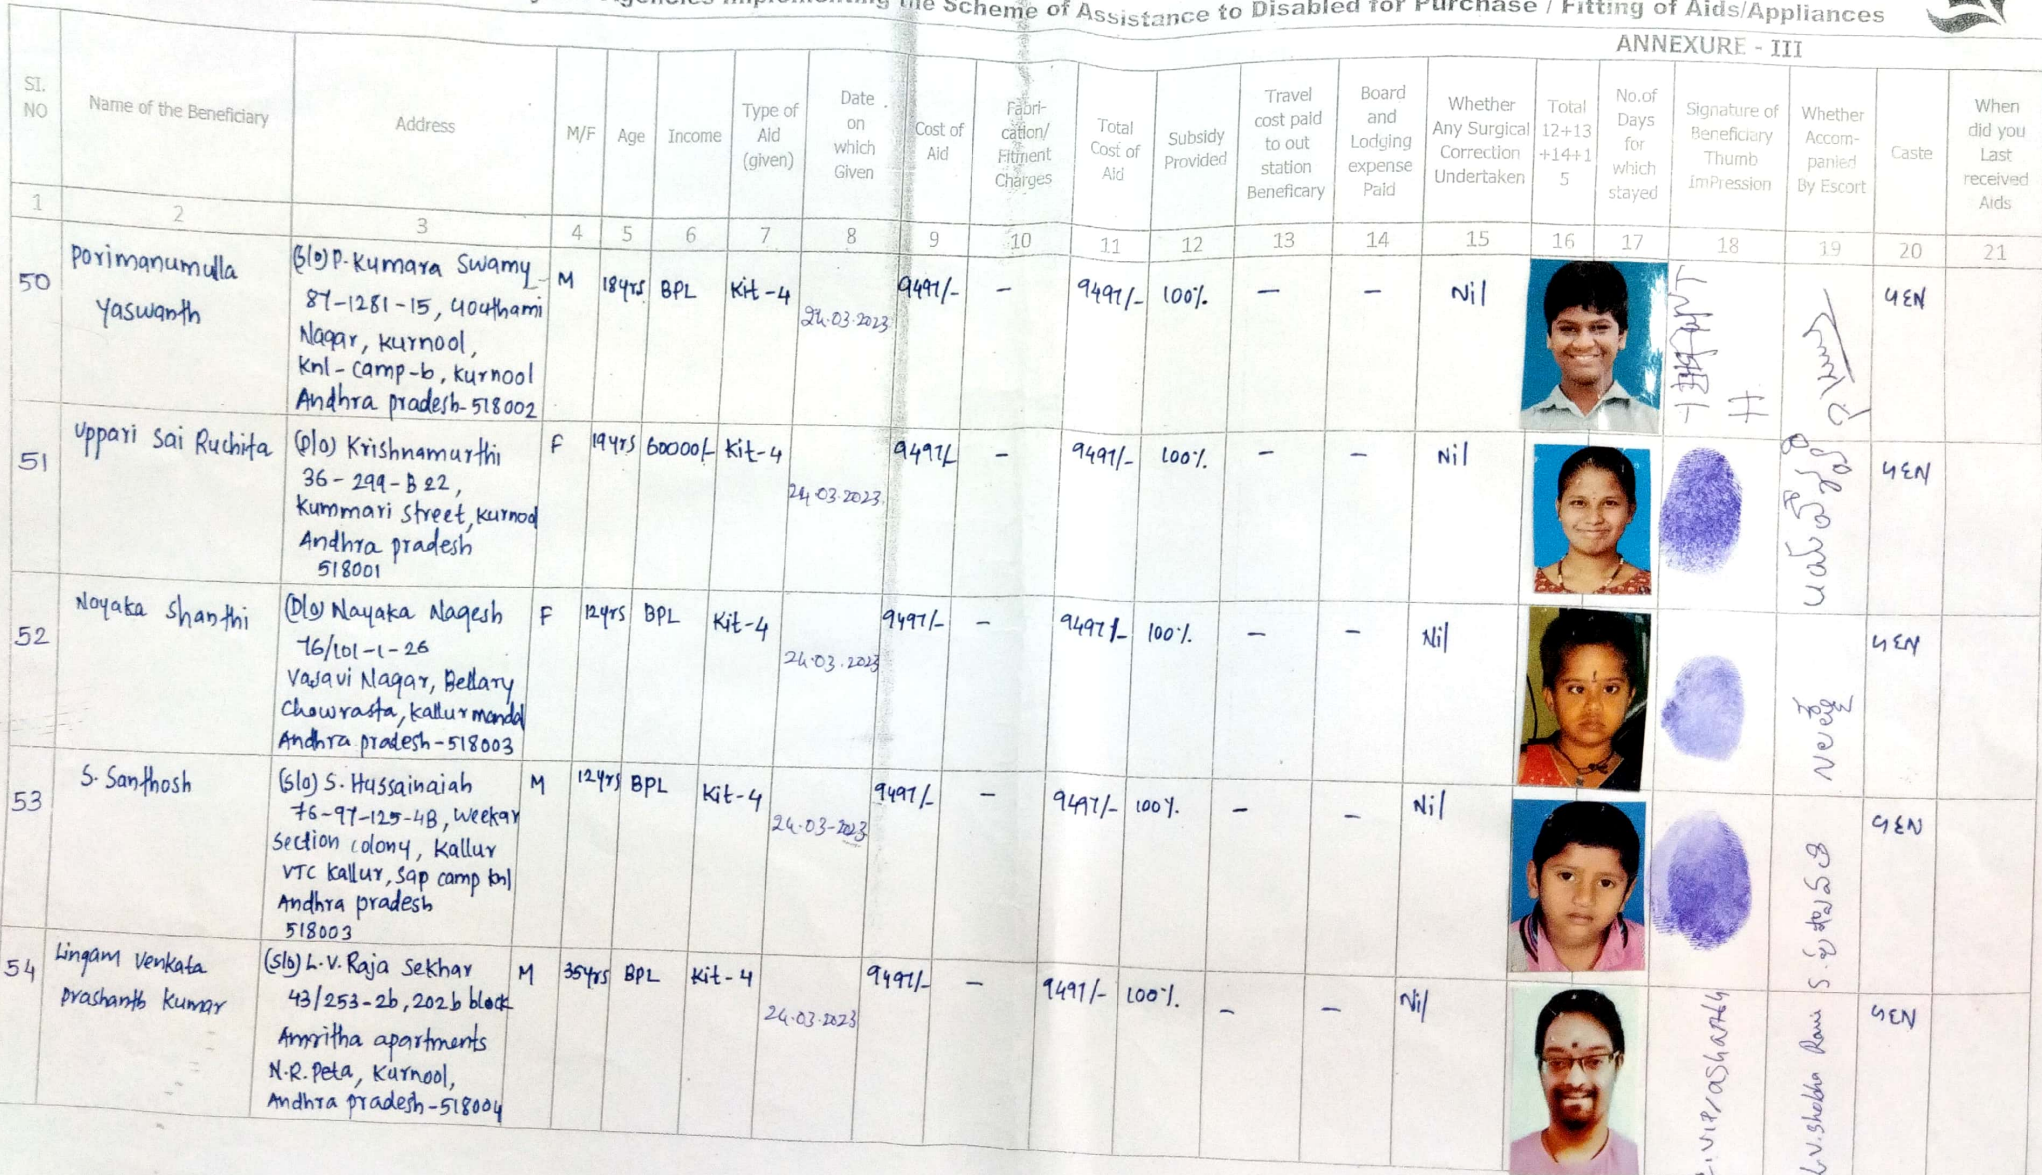 the Scheme of Assistance to Disabled for Purchase / Fitting of Aids/Appliances
ANNEXURE - III
SI. NO
Name of the Beneficiary
Address
M/F
Age
Income
Type of Aid (given)
Date on which Given
Cost of Aid
Fabri-cation/ Fitment Charges
Total Cost of Aid
Subsidy Provided
Travel cost paid to out station Beneficary
Board and Lodging expense Paid
Whether Any Surgical Correction Undertaken
Total 12+13 +14+1 5
No.of Days for which stayed
Signature of Beneficiary Thumb ImPression
Whether Accom-panied By Escort
Caste
When did you Last received Aids
1 2 3 4 5 6 7 8 9 10 11 12 13 14 15 16 17 18 19 20 21
50
Porimanumulla
Yaswanth
(S/o) P. Kumara Swamy
87-1281-15, Gouthami
Nagar, Kurnool,
Knl-camp-b, Kurnool
Andhra pradesh-518002
M 18yrs BPL Kit-4 24.03.2023 9497/- - 9497/- 100% - - Nil GEN
51
Uppari Sai Ruchita
(D/o) Krishnamurthi
36-299-B22,
Kummari street, Kurnool
Andhra pradesh
518001
F 19yrs 60000/- Kit-4 24.03.2023 9497/- - 9497/- 100% - - Nil GEN
52
Nayaka Shanthi
(D/o) Nayaka Nagesh
76/101-1-26
Vasavi Nagar, Bellary
Chowrasta, Kallur mandal
Andhra pradesh-518003
F 12yrs BPL Kit-4 24.03.2023 9497/- - 9497/- 100% - - Nil GEN
53
S. Santhosh
(S/o) S. Hussainaiah
76-97-125-4B, Weekar
Section colony, Kallur
VTC Kallur, Sap camp Knl
Andhra pradesh
518003
M 12yrs BPL Kit-4 24.03-2023 9497/- - 9497/- 100% - - Nil GEN
54
Lingam Venkata
Prashanth Kumar
(S/o) L.V. Raja Sekhar
43/253-2b, 202b block
Amritha apartments
N.R. Peta, Kurnool,
Andhra pradesh-518004
M 35yrs BPL Kit-4 24.03.2023 9497/- - 9497/- 100% - - Nil
L.V. Shobha Rani
GEN